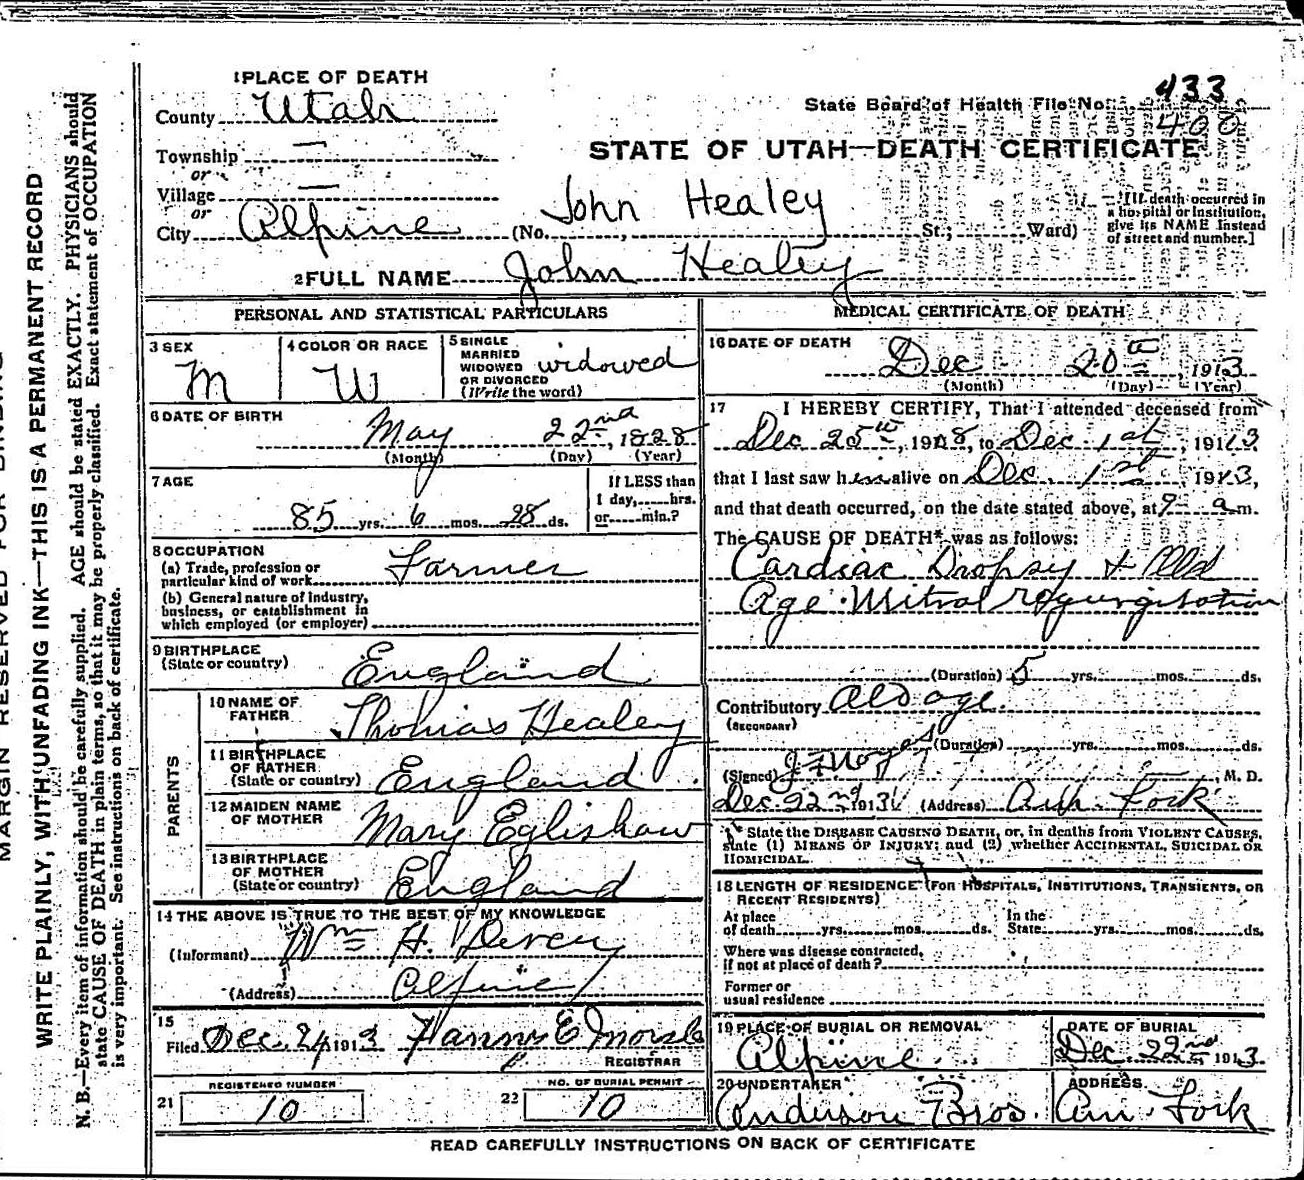 1 PLACE OF DEATH
County Utah
Township —
or
Village —
or
City Alpine
State Board of Health File No. 433
408
STATE OF UTAH—DEATH CERTIFICATE
John Healey
(No. , St.; Ward)
[If death occurred in a hospital or institution, give its NAME instead of street and number.]
2 FULL NAME John Healey
PERSONAL AND STATISTICAL PARTICULARS
3 SEX M
4 COLOR OR RACE W
5 SINGLE MARRIED WIDOWED OR DIVORCED (Write the word) widowed
6 DATE OF BIRTH
May 22nd, 1828
(Month) (Day) (Year)
7 AGE
85 yrs. 6 mos. 28 ds.
If LESS than 1 day, hrs. or min.?
8 OCCUPATION
(a) Trade, profession or particular kind of work Farmer
(b) General nature of industry, business, or establishment in which employed (or employer)
9 BIRTHPLACE
(State or country) England
PARENTS
10 NAME OF FATHER Thomas Healey
11 BIRTHPLACE OF FATHER (State or country) England
12 MAIDEN NAME OF MOTHER Mary Eglishaw
13 BIRTHPLACE OF MOTHER (State or country) England
14 THE ABOVE IS TRUE TO THE BEST OF MY KNOWLEDGE
(Informant) Wm H. Devey
(Address) Alpine
15
Filed Dec. 24 1913 Fanny E
REGISTRAR
REGISTERED NUMBER
21 10
NO. OF BURIAL PERMIT
22 10
MEDICAL CERTIFICATE OF DEATH
16 DATE OF DEATH
Dec 20th, 1913
(Month) (Day) (Year)
17 I HEREBY CERTIFY, That I attended deceased from
Dec 25th, 1908, to Dec 1st, 1913
that I last saw him alive on Dec 1st, 1913,
and that death occurred, on the date stated above, at 9 a m.
The CAUSE OF DEATH* was as follows:
Cardiac Dropsy + Old
Age. Mitral regurgitation
(Duration) 5 yrs. mos. ds.
Contributory Old age
(SECONDARY)
(Duration) yrs. mos. ds.
(Signed) J F Noyes, M. D.
Dec 22nd 1913 (Address) Am. Fork
* State the DISEASE CAUSING DEATH, or, in deaths from VIOLENT CAUSES, state (1) MEANS OF INJURY; and (2) whether ACCIDENTAL, SUICIDAL OR HOMICIDAL.
18 LENGTH OF RESIDENCE (FOR HOSPITALS, INSTITUTIONS, TRANSIENTS, OR RECENT RESIDENTS)
At place of death yrs. mos. ds. In the State yrs. mos. ds.
Where was disease contracted, if not at place of death?
Former or usual residence
19 PLACE OF BURIAL OR REMOVAL
Alpine
DATE OF BURIAL
Dec. 22nd 1913
20 UNDERTAKER
Anderson Bros.
ADDRESS
Am. Fork
READ CAREFULLY INSTRUCTIONS ON BACK OF CERTIFICATE
WRITE PLAINLY, WITH UNFADING INK—THIS IS A PERMANENT RECORD
N. B.—Every item of information should be carefully supplied. AGE should be stated EXACTLY. PHYSICIANS should
state CAUSE OF DEATH in plain terms, so that it may be properly classified. Exact statement of OCCUPATION
is very important. See instructions on back of certificate.
MARGIN RESERVED FOR BINDING